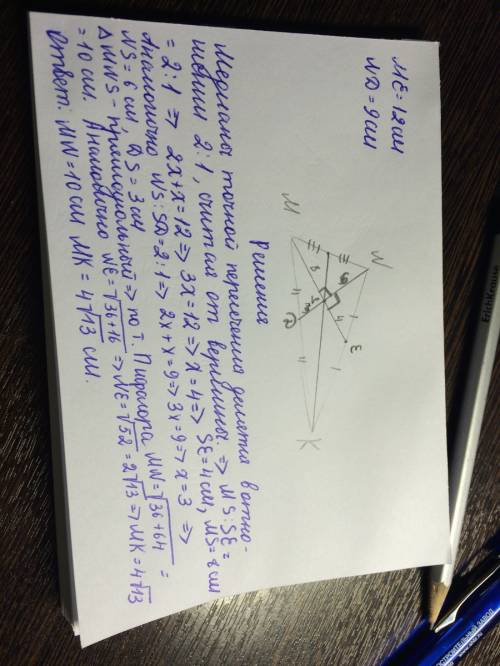 ME=12см
ND=9см
M
N
E
K
D
S
8
6
4
3
Решения
Медианы точкой пересечения делятся в отно-
шении 2:1, считая от вершины. ⇒ MS:SE=
=2:1 ⇒ 2x+x=12 ⇒ 3x=12 ⇒ x=4 ⇒ SE=4см, MS=8см
Аналогично NS:SD=2:1 ⇒ 2x+x=9 ⇒ 3x=9 ⇒ x=3 ⇒
NS=6см, DS=3см
△MNS - прямоугольный ⇒ по т. Пифагора MN=√36+64 =
=10см. Аналогично NE=√36+16 ⇒ NE=√52=2√13 ⇒ NK=4√13
Ответ: MN=10см NK=4√13 см.
ErichKrause